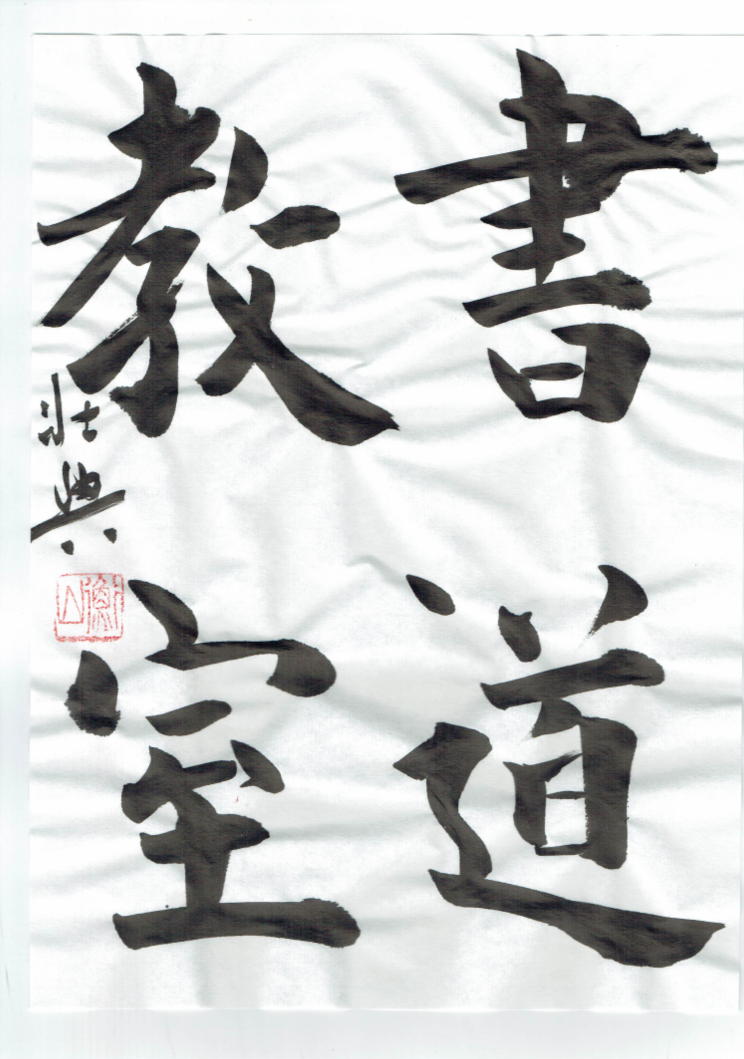 書道
教室
壮典